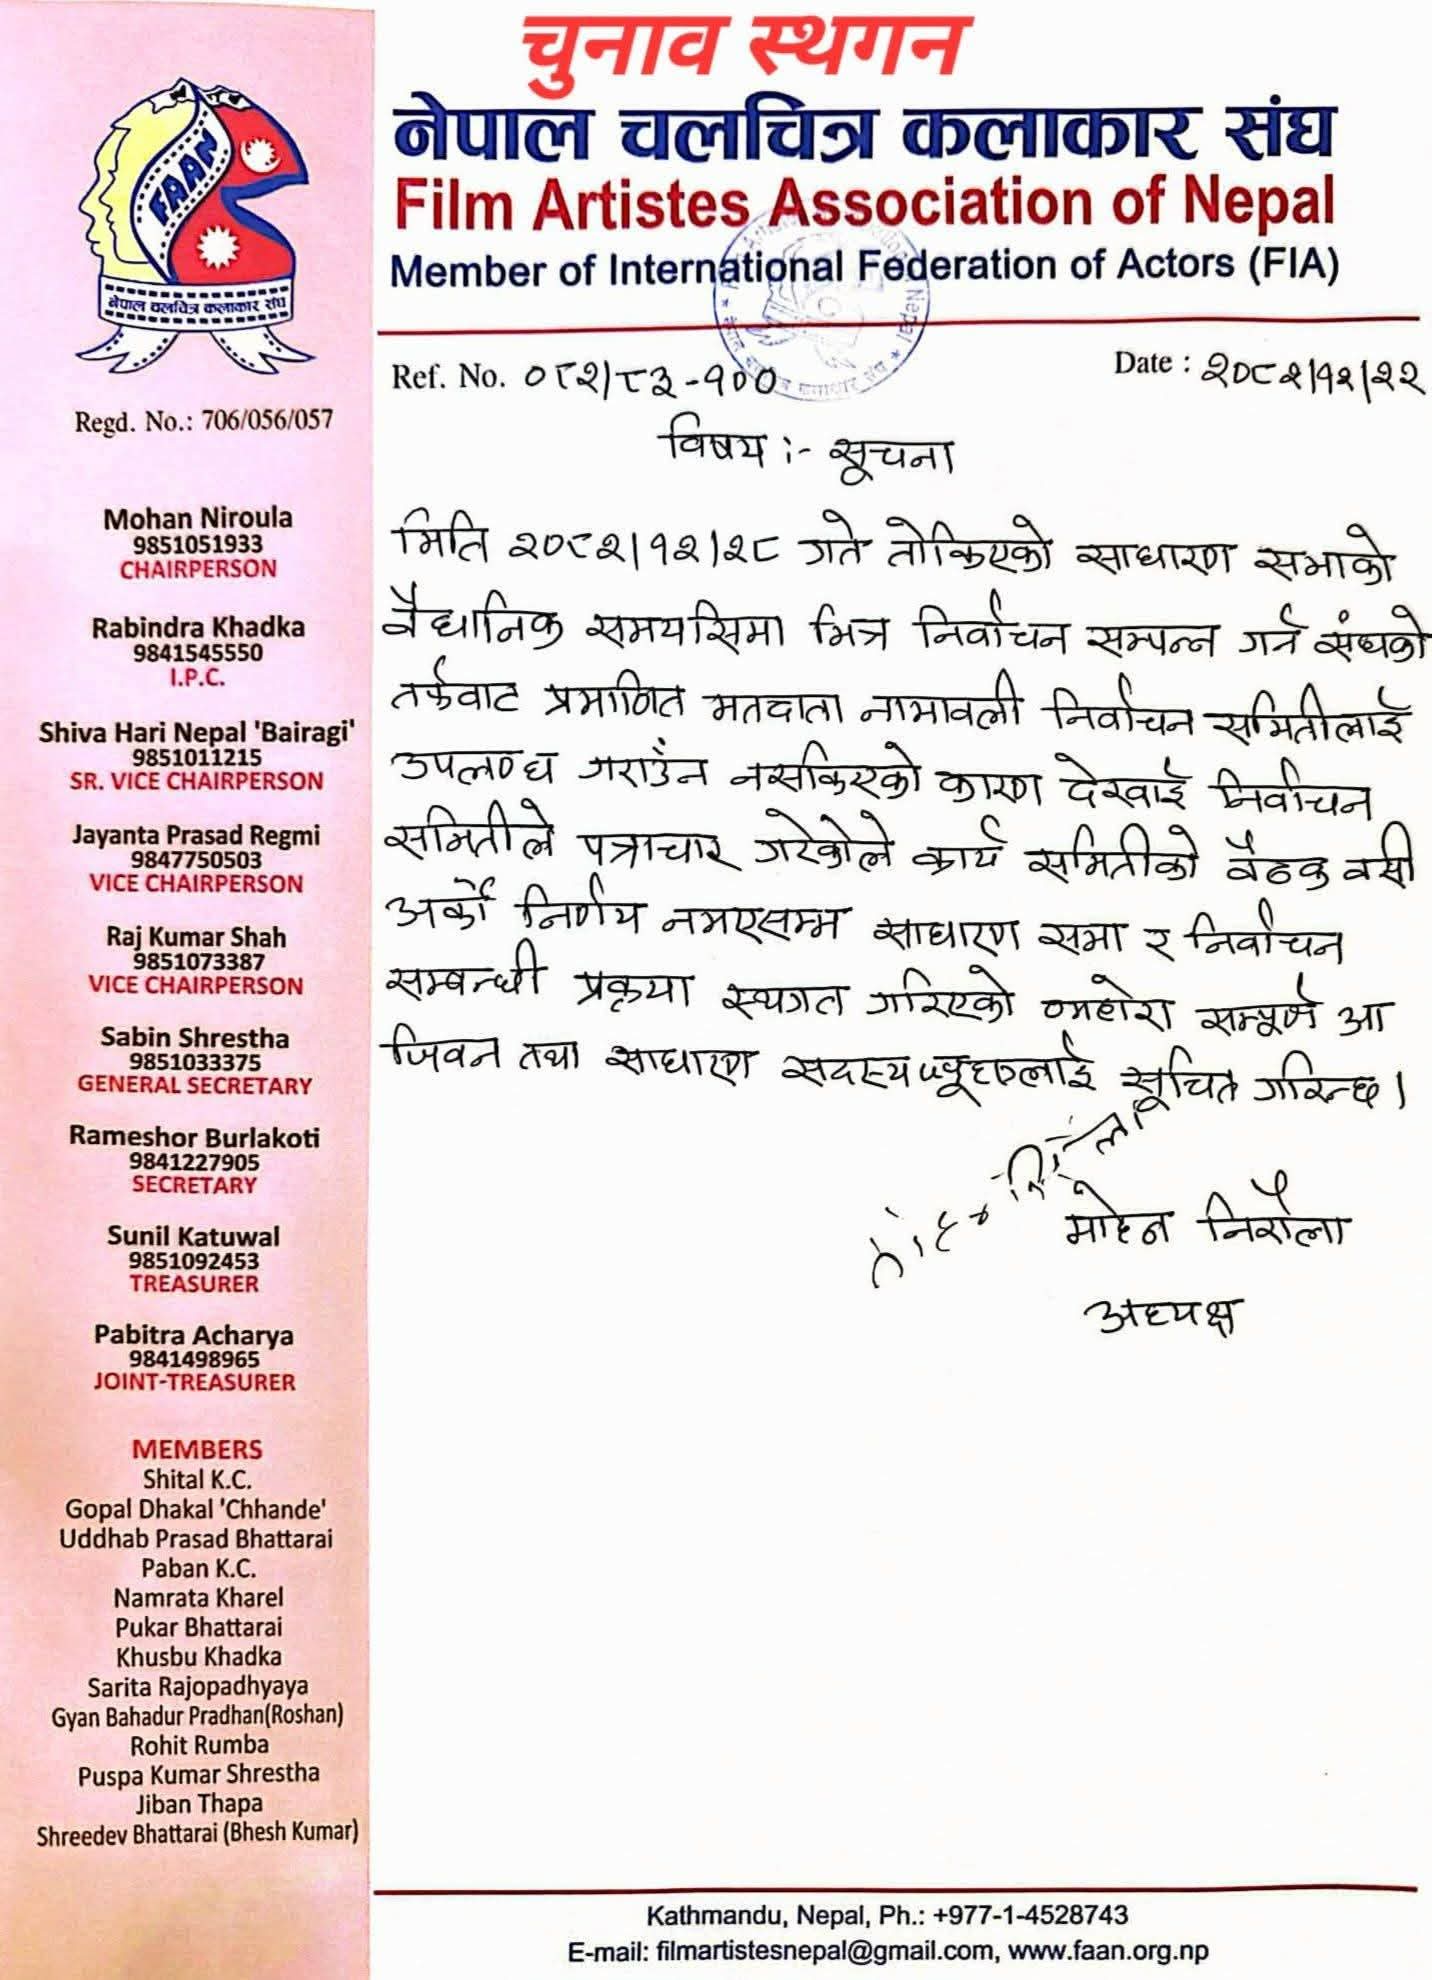 चुनाव स्थगन
नेपाल चलचित्र कलाकार संघ
Film Artistes Association of Nepal
Member of International Federation of Actors (FIA)
FAAN
नेपाल चलचित्र कलाकार संघ
Regd. No.: 706/056/057
Ref. No. ०८२/८३-१००
Date : २०८२/१२/२२
विषय :- सूचना
मिति २०८२/१२/२८ गते तोकिएको साधारण सभाको
वैधानिक समयसिमा भित्र निर्वाचन सम्पन्न गर्न संघको
तर्फवाट प्रमाणित मतदाता नामावली निर्वाचन समितीलाई
उपलब्ध गराउँन नसकिएको कारण देखाई निर्वाचन
समितीले पत्राचार गरेकोले कार्य समितीको वैठक वसी
अर्को निर्णय नभएसम्म साधारण सभा र निर्वाचन
सम्बन्धी प्रकृया स्थगत गरिएको व्यहोरा सम्पूर्ण आ
जिवन तथा साधारण सदस्यज्यूहरुलाई सूचित गरिन्छ ।
मोहन निरौला
अध्यक्ष
Mohan Niroula
9851051933
CHAIRPERSON
Rabindra Khadka
9841545550
I.P.C.
Shiva Hari Nepal 'Bairagi'
9851011215
SR. VICE CHAIRPERSON
Jayanta Prasad Regmi
9847750503
VICE CHAIRPERSON
Raj Kumar Shah
9851073387
VICE CHAIRPERSON
Sabin Shrestha
9851033375
GENERAL SECRETARY
Rameshor Burlakoti
9841227905
SECRETARY
Sunil Katuwal
9851092453
TREASURER
Pabitra Acharya
9841498965
JOINT-TREASURER
MEMBERS
Shital K.C.
Gopal Dhakal 'Chhande'
Uddhab Prasad Bhattarai
Paban K.C.
Namrata Kharel
Pukar Bhattarai
Khusbu Khadka
Sarita Rajopadhyaya
Gyan Bahadur Pradhan(Roshan)
Rohit Rumba
Puspa Kumar Shrestha
Jiban Thapa
Shreedev Bhattarai (Bhesh Kumar)
Kathmandu, Nepal, Ph.: +977-1-4528743
E-mail: filmartistesnepal@gmail.com, www.faan.org.np